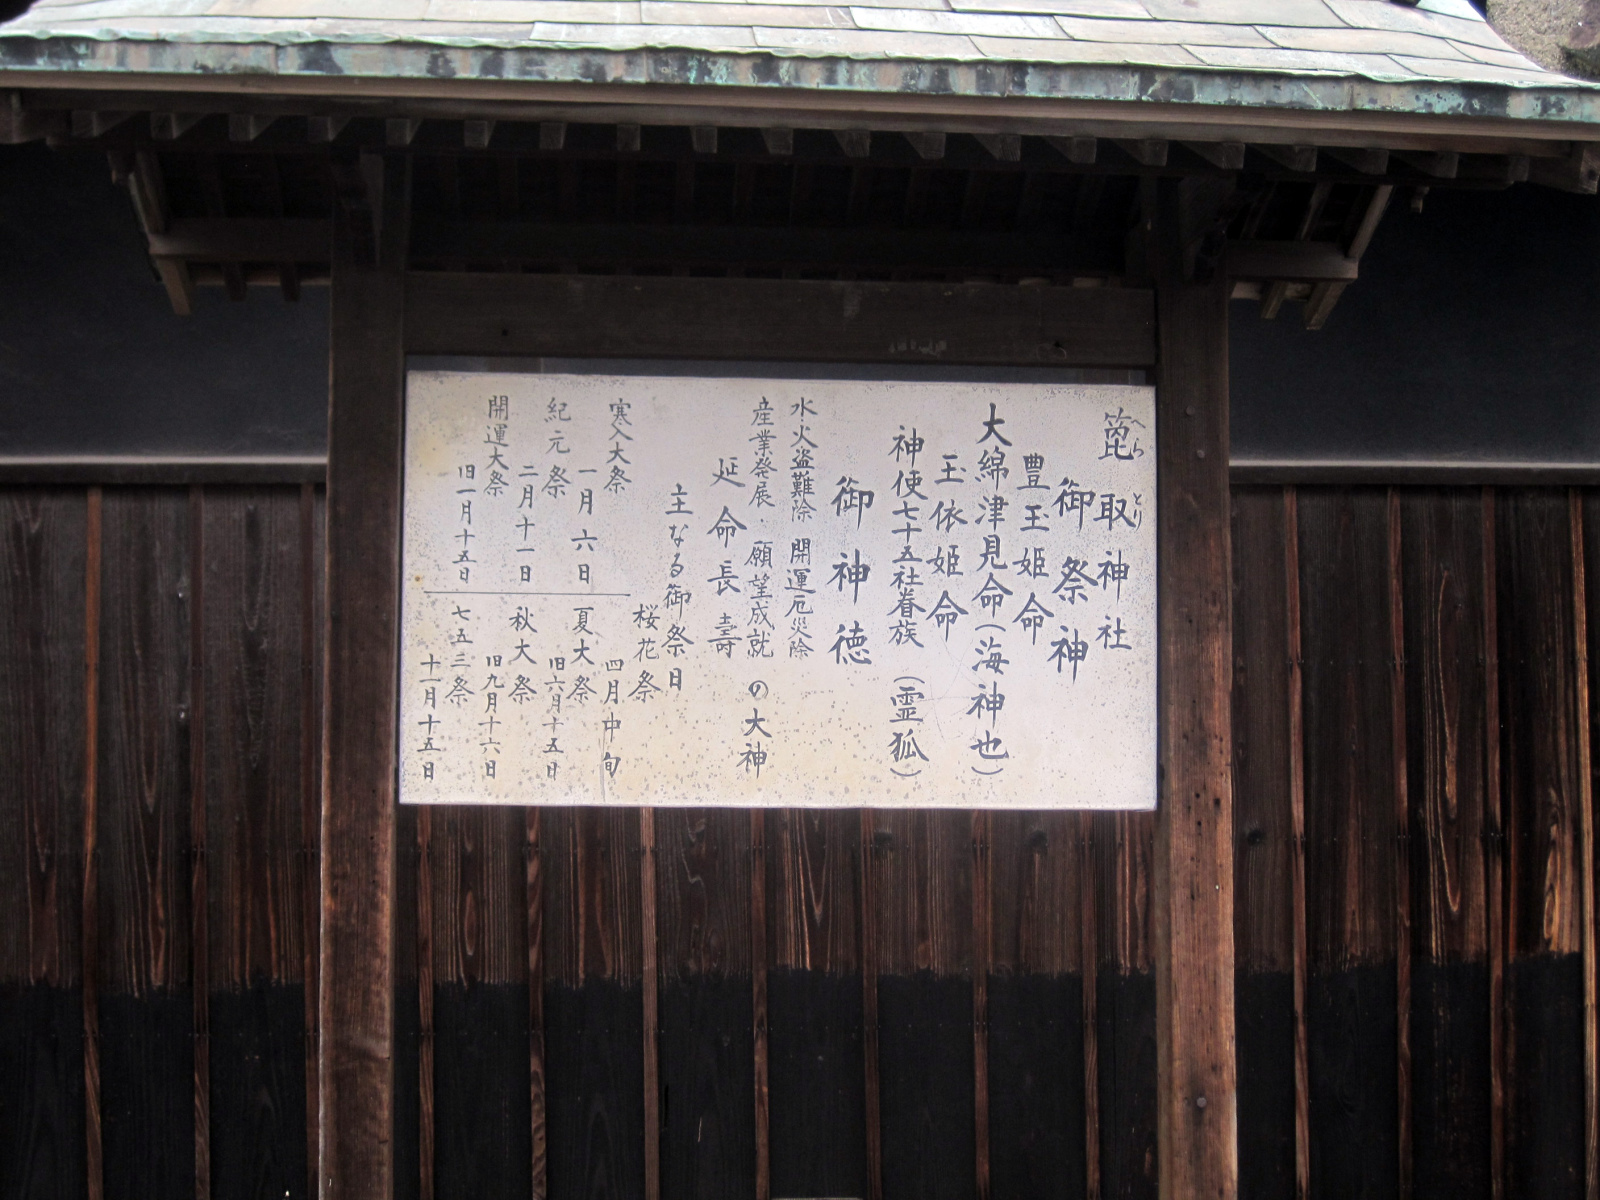 箆取神社
へら とり
御祭神
豊玉姫命
大綿津見命(海神也)
玉依姫命
神使七十五社眷族(霊狐)
御神徳
水火盗難除 開運厄災除
産業発展・願望成就の大神
延命長壽
主なる御祭日
寒入大祭
一月六日
紀元祭
二月十一日
開運大祭
旧一月十五日
桜花祭
四月中旬
夏大祭
旧六月十五日
秋大祭
旧九月十六日
七五三祭
十一月十五日